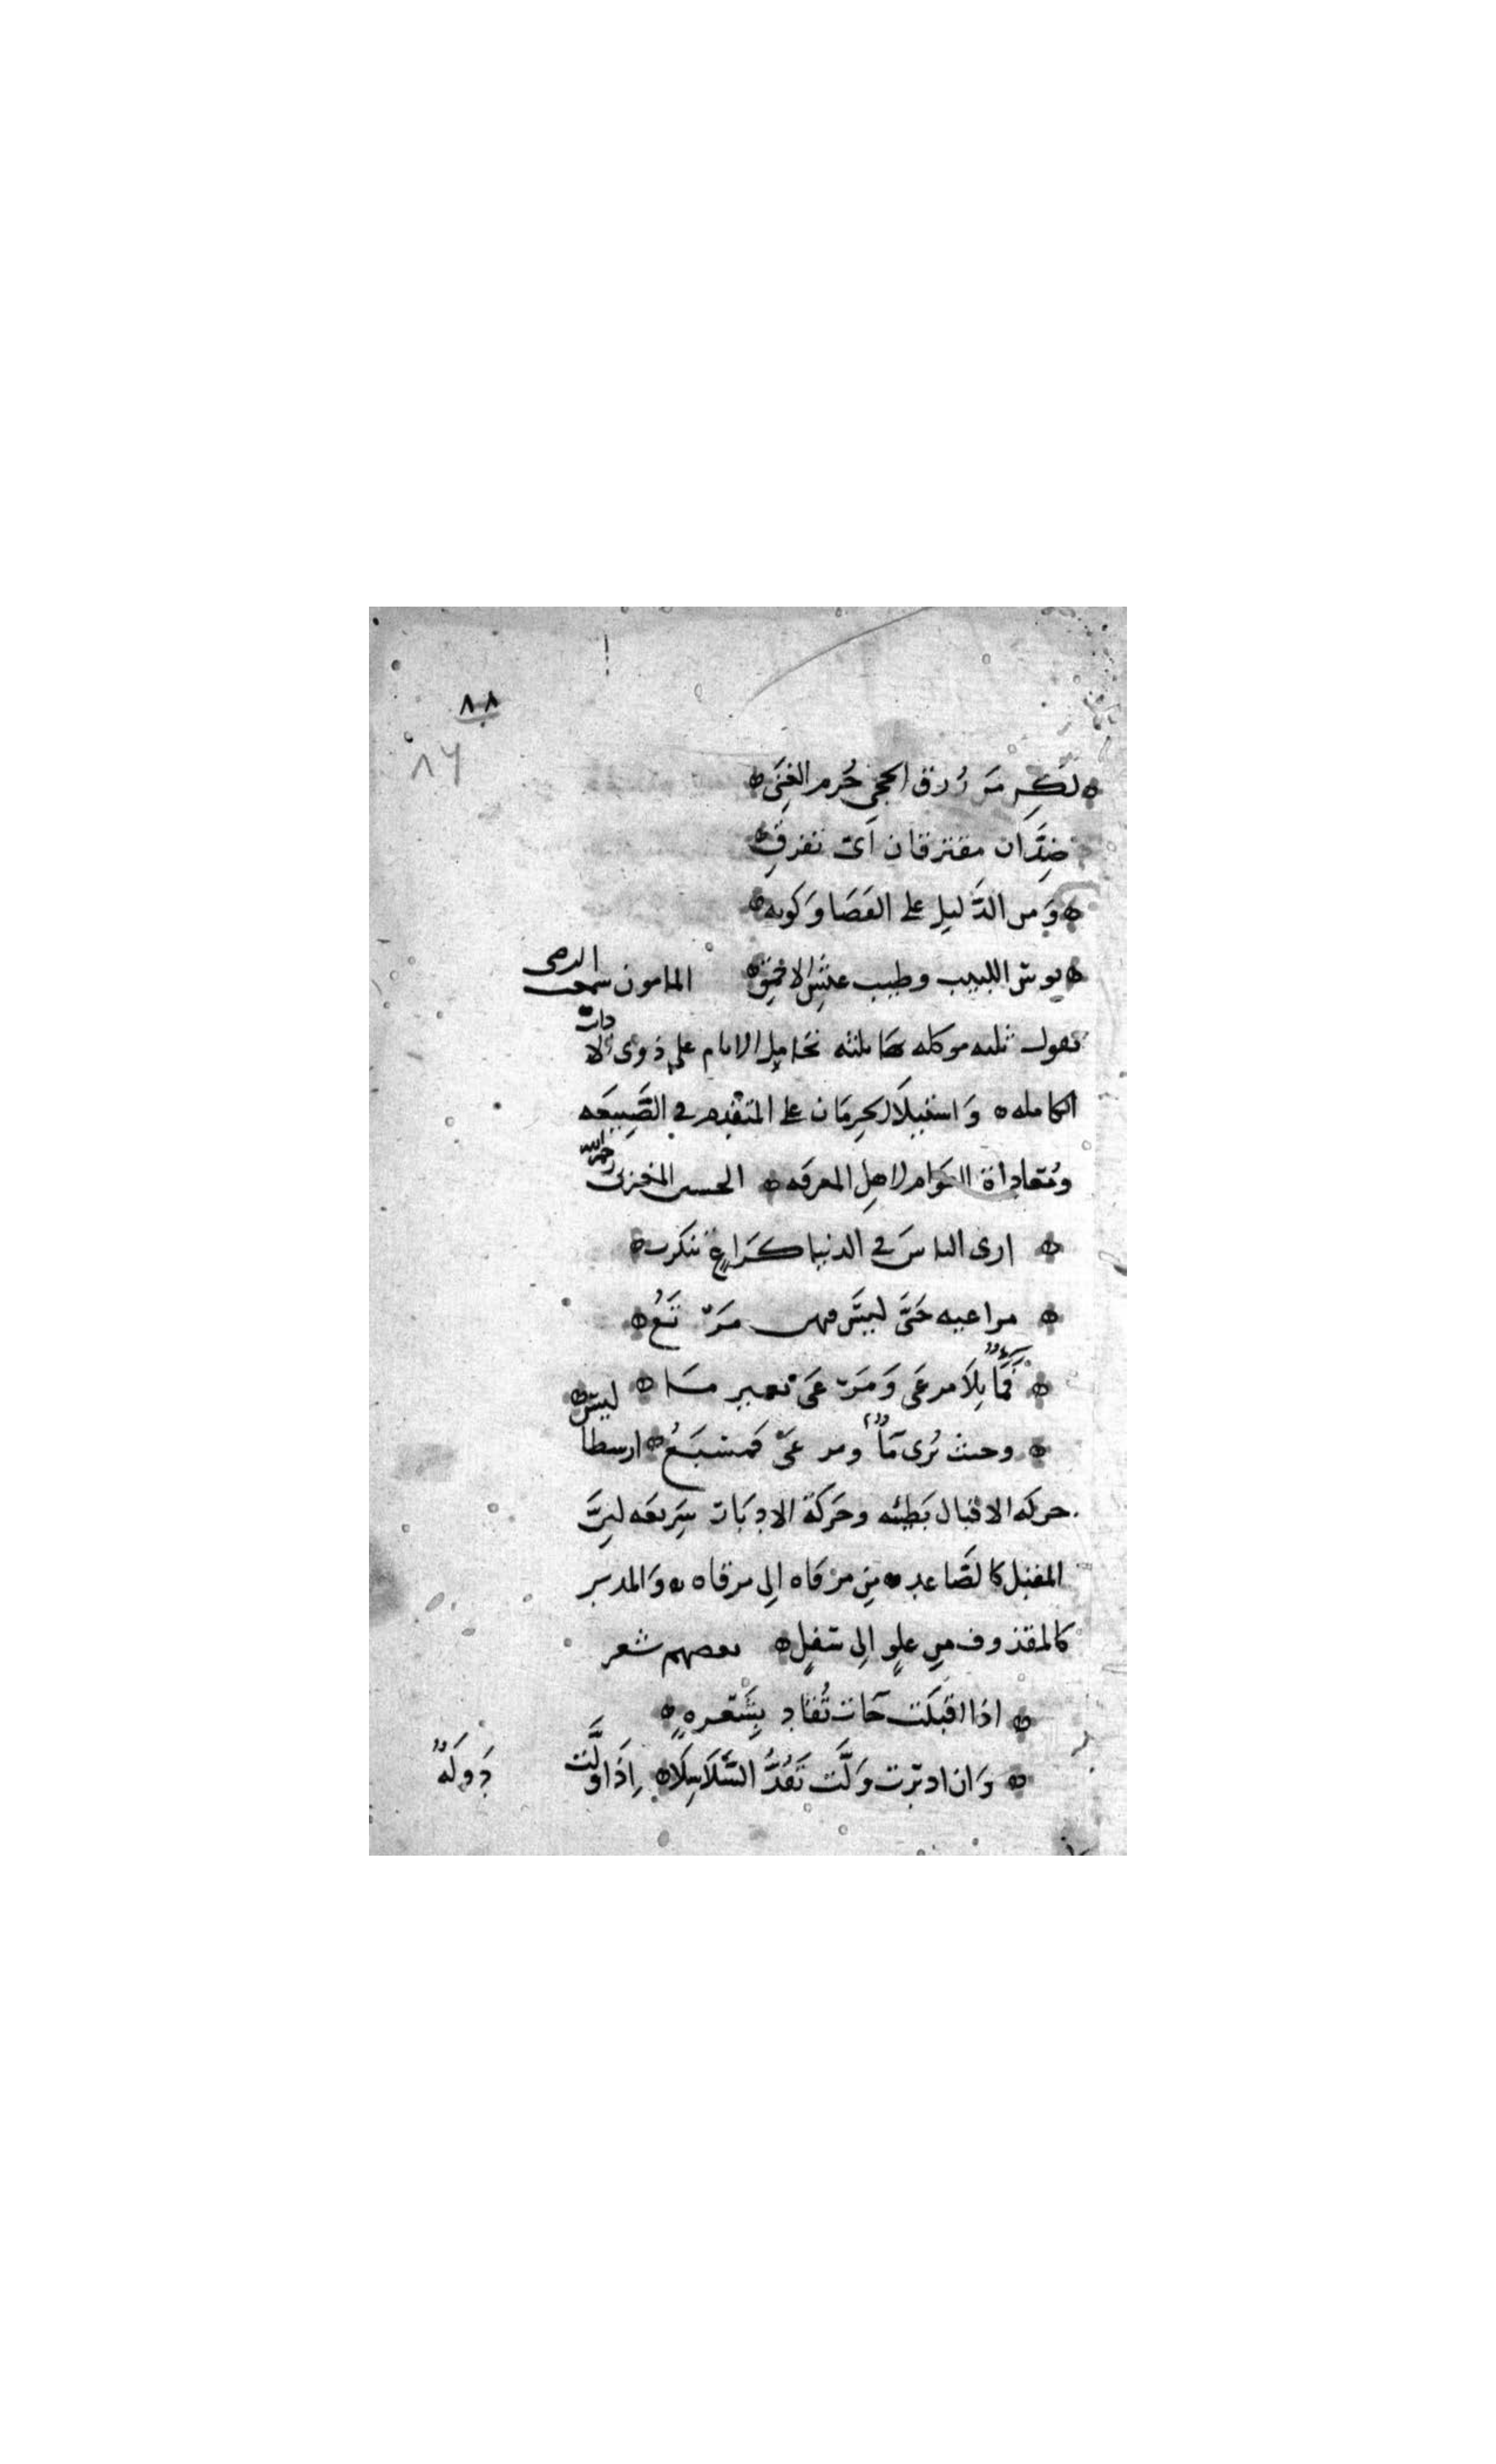 ٨٨
٨٦
لكن من رزق الحجى حرم الغنى
ضدّان مفترقان اىّ تفرق
ومن الدّليل على القضا وكونه
بوس اللبيب وطيب عيش الاحمق المامون سمعت
تقول ثلثه موكله بثلثه تحامل الايام على ذوى الا دات
الكامله واستيلا الحرمان على المتقدم فى الصّنيعه
ومعاداة العوام لاهل المعرفه الحسن رحمه الله
ارى الناس فى الدنيا كراع تنكرت
مراعيه حتى ليس فيهن مرتع
فمآء بلا مرعى ومرعى بغير ما
وحيث ترى مآء ومرعى فمسبع ارسطا ليس
حركه الاقبال بطيئه وحركة الادبار سريعه لان
المقبل كالصّاعد من مرقاه الى مرقاه والمدبر
كالمقذوف من علو الى سفل بعضهم شعر
اذا اقبلت كانت تقاد بشعره
وان ادبرت ولّت تقدّ السّلاسلا اذا ولّت دولة